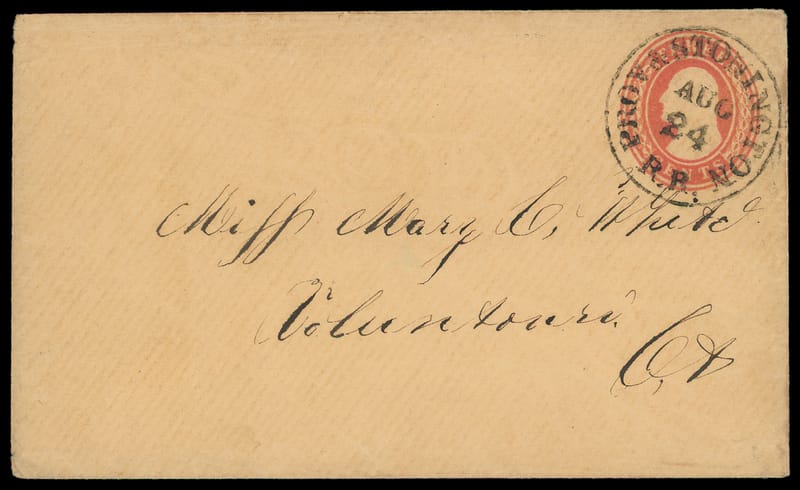 PROV & STONINGTON R.R.
AUG
24
Miss Mary C. White
Voluntown.
Ct